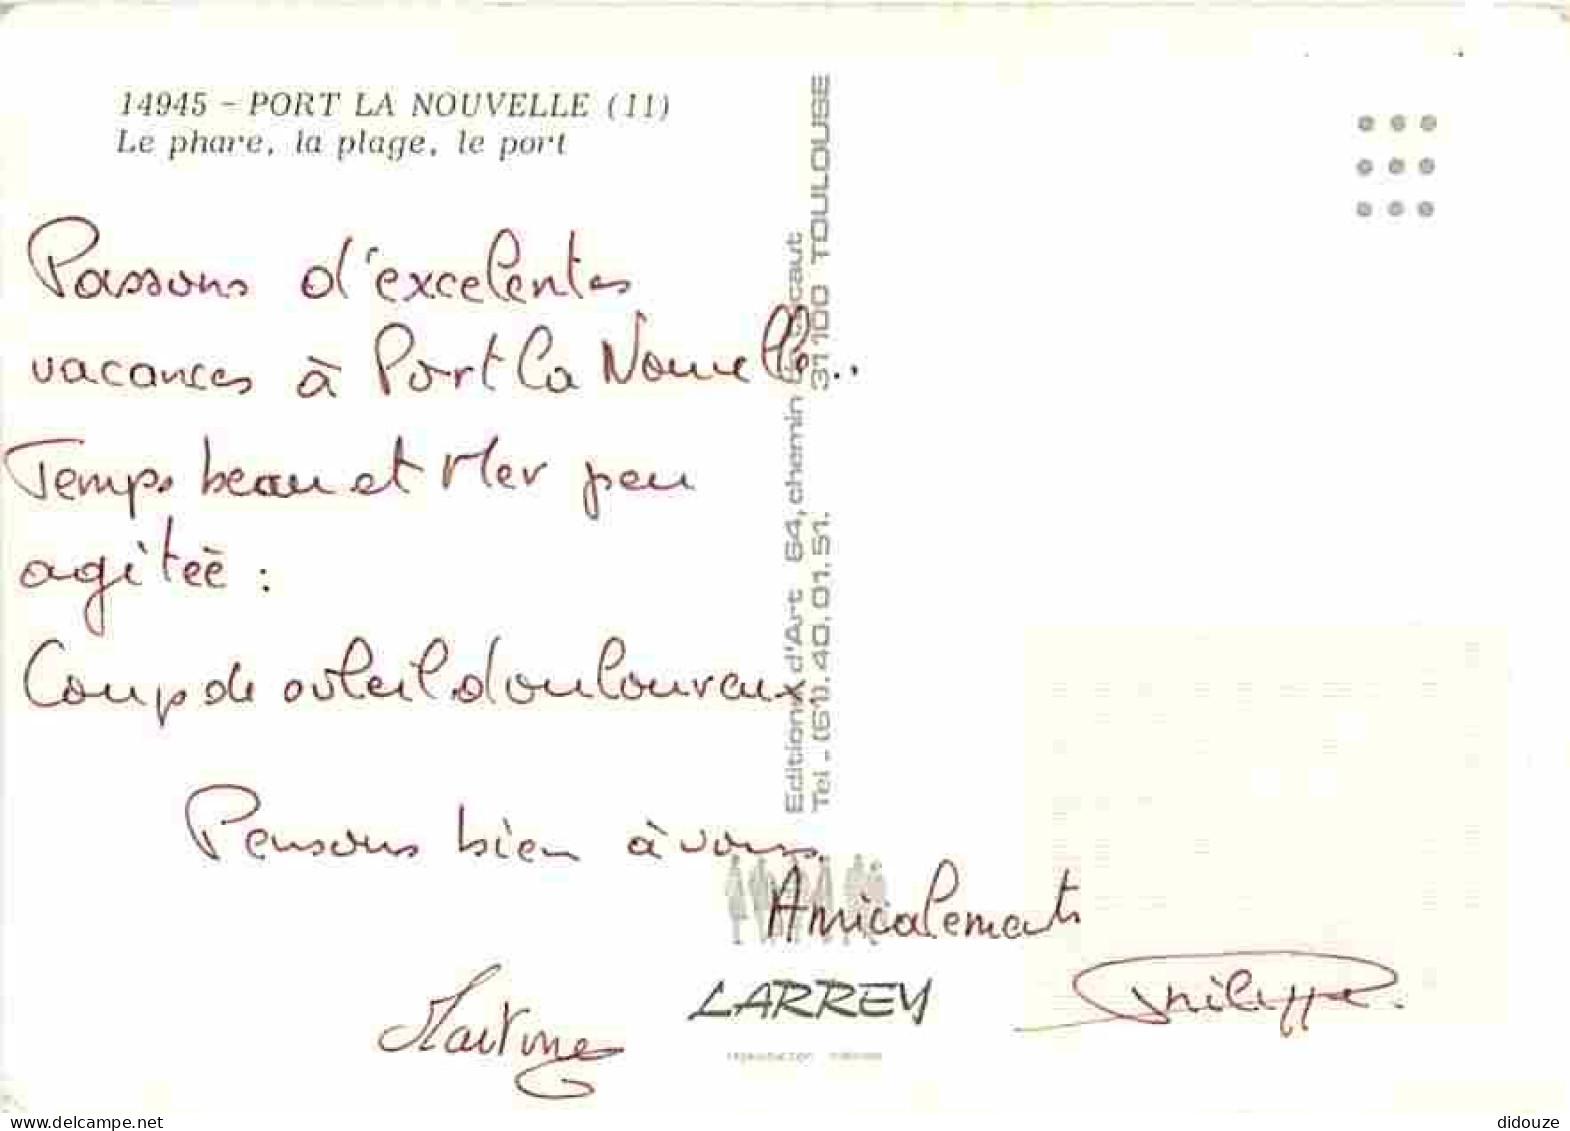 14945 - PORT LA NOUVELLE (11)
Le phare, la plage, le port
Passons d'excelentes
vacances à Port la Nouvelle..
Temps beau et Mer peu
agitée :
Coup de soleil douloureux.
Pensons bien à vous.
Amicalements
Martine
Philippe.
Editions d'Art 64, chemin Lescaut
Tel - (61). 40. 01. 51. 31100 TOULOUSE
LARREY
www.delcampe.net
didouze